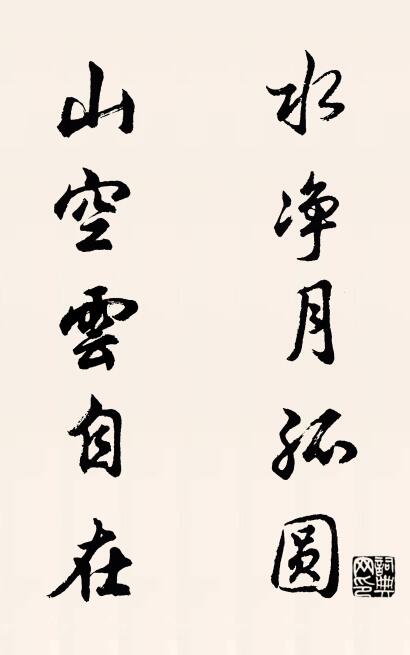 水净月孤圆
山空雲自在
詞典網印